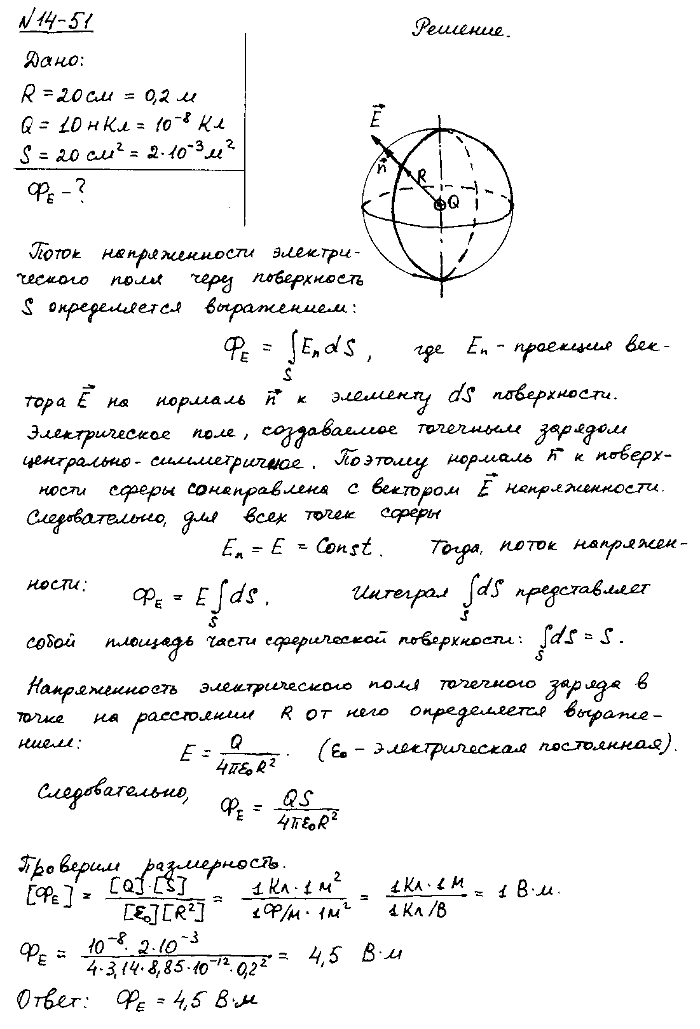 №14-51
Решение.
Дано:
R = 20 см = 0,2 м
Q = 10 нКл = 10⁻⁸ Кл
S = 20 см² = 2·10⁻³ м²
Φ_E - ?
E⃗
n⃗
R
Q
Поток напряженности электри-
ческого поля через поверхность
S определяется выражением:
Φ_E = ∫_S E_n dS, где E_n - проекция век-
тора E⃗ на нормаль n⃗ к элементу dS поверхности.
Электрическое поле, создаваемое точечным зарядом
центрально-симметричное. Поэтому нормаль n⃗ к поверх-
ности сферы сонаправлена с вектором E⃗ напряженности.
Следовательно, для всех точек сферы
E_n = E = Const. Тогда, поток напряжен-
ности: Φ_E = E ∫_S dS. Интеграл ∫_S dS представляет
собой площадь части сферической поверхности: ∫_S dS = S.
Напряженность электрического поля точечного заряда в
точке на расстоянии R от него определяется выраже-
нием: E = Q/(4πε₀R²). (ε₀ - электрическая постоянная).
Следовательно, Φ_E = QS/(4πε₀R²)
Проверим размерность.
[Φ_E] = [Q]·[S]/([ε₀][R²]) = 1 Кл · 1 м²/(1 Ф/м · 1 м²) = 1 Кл · 1 м/(1 Кл/В) = 1 В·м.
Φ_E = 10⁻⁸ · 2·10⁻³/(4·3,14·8,85·10⁻¹²·0,2²) = 4,5 В·м
Ответ: Φ_E = 4,5 В·м